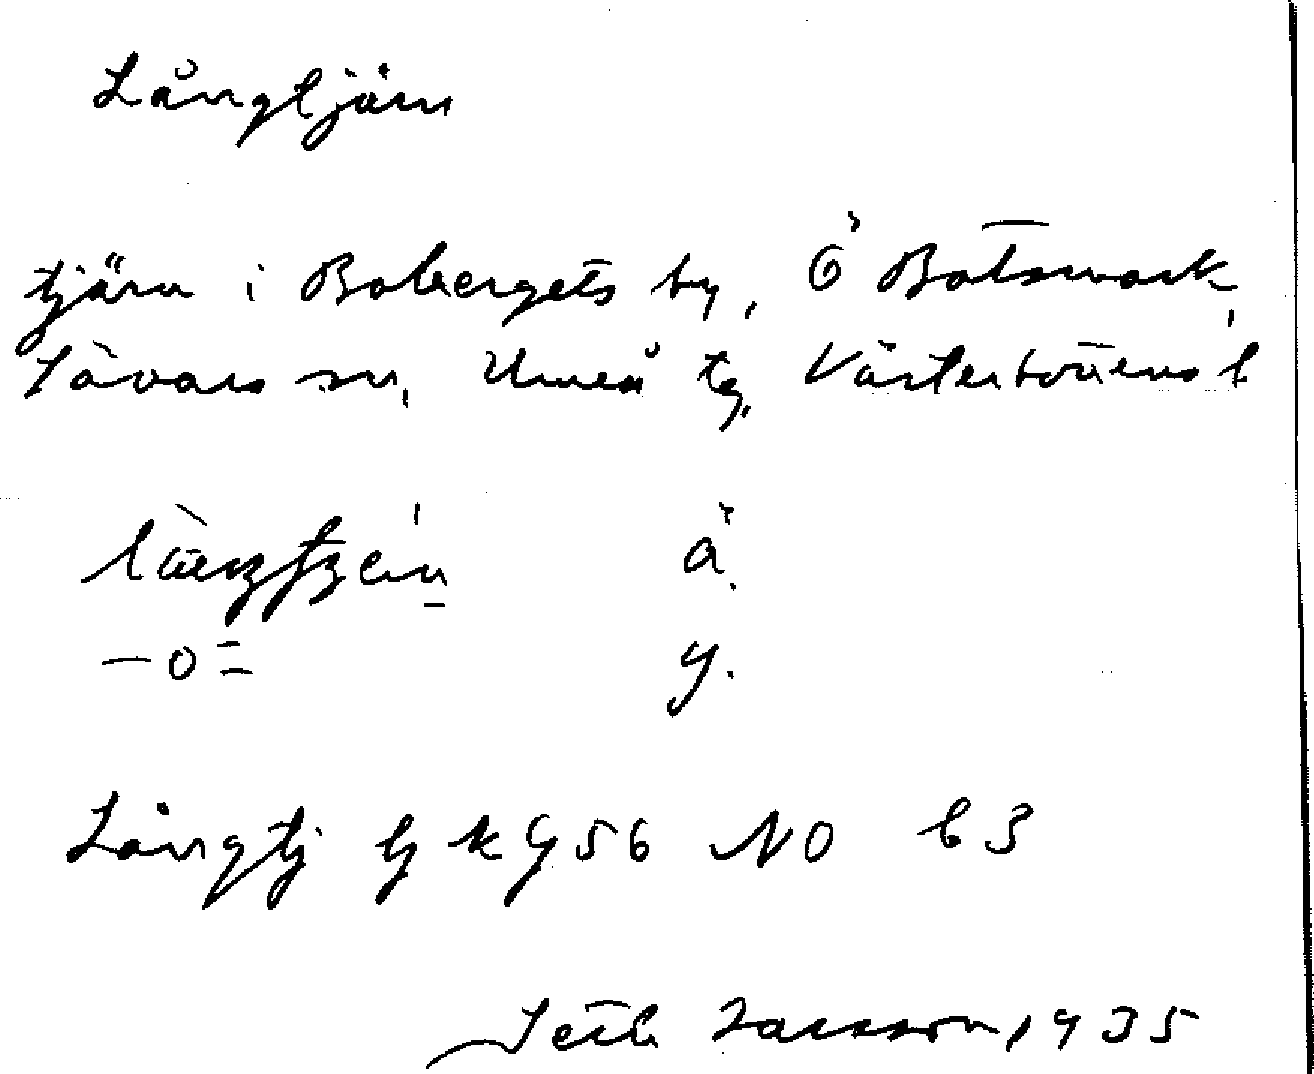 Långtjärn
tjärn i Bobergets by, Ö Botsmark,
Sävars sn, Umeå tg, Västerbottens l
ä.
y.
Långtj tj k G 56 NO b 3
Seth Larsson, 1935